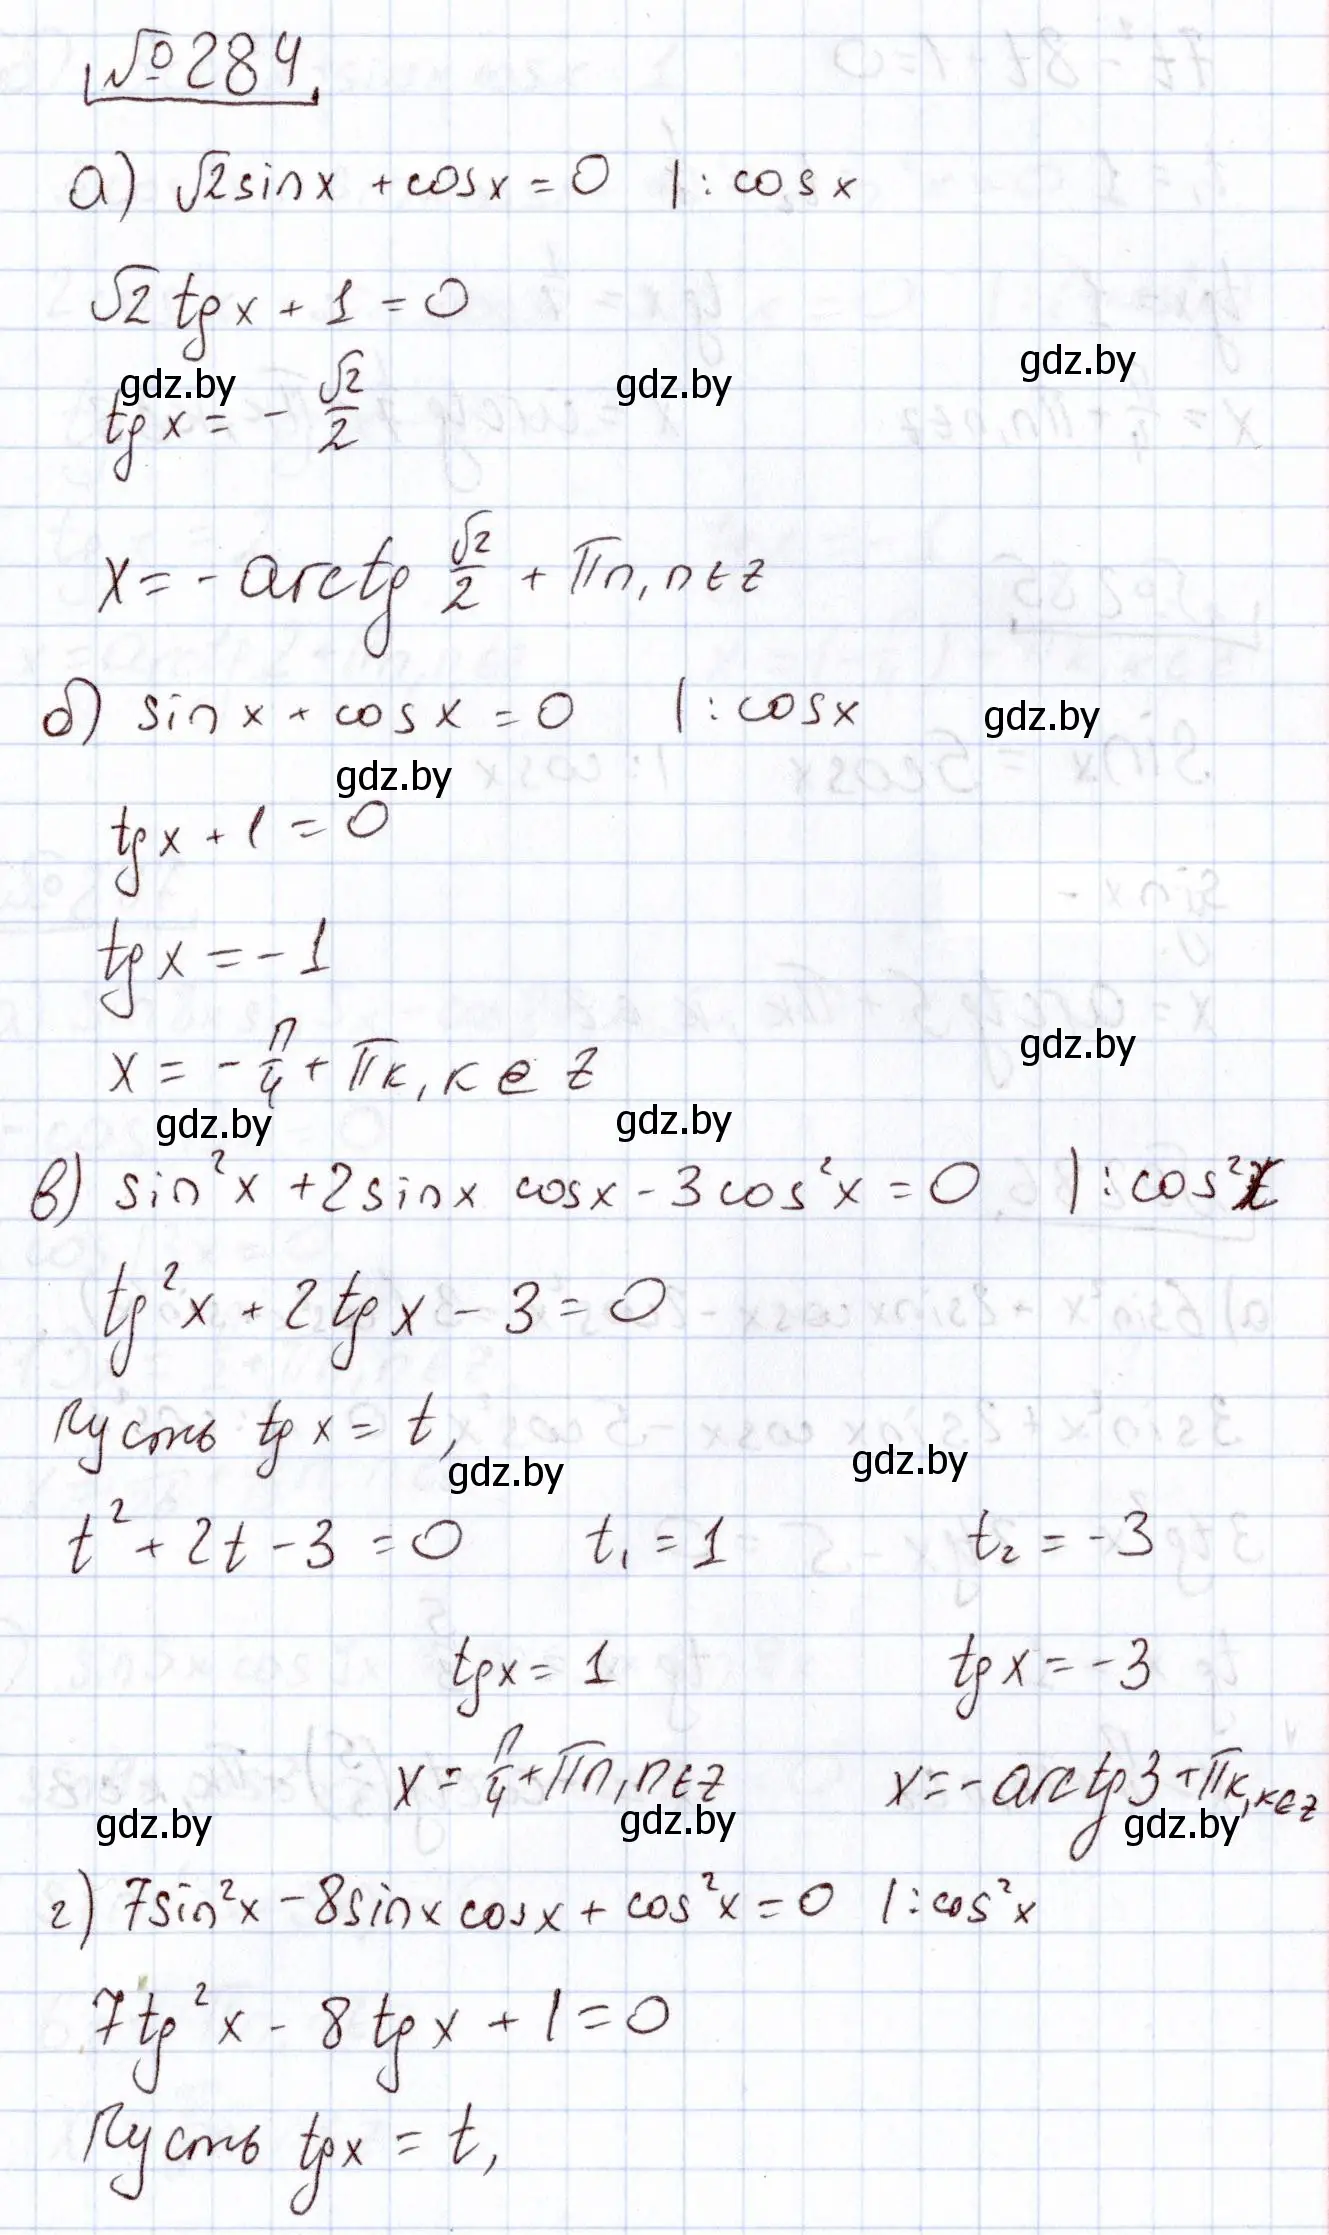 №284
а) √2 sin x + cos x = 0 |: cos x
√2 tg x + 1 = 0
gdz.by gdz.by gdz.by
tg x = - √2/2
x = - arctg √2/2 + πn, n ∈ z
б) sin x + cos x = 0 |: cos x
gdz.by
gdz.by
tg x + 1 = 0
tg x = - 1
x = - π/4 + πк, к ∈ z
gdz.by
gdz.by gdz.by
в) sin²x + 2 sin x cos x - 3 cos²x = 0 |: cos²x
tg²x + 2 tg x - 3 = 0
Пусть tg x = t,
gdz.by gdz.by
t² + 2t - 3 = 0 t₁ = 1 t₂ = -3
tg x = 1 tg x = -3
x = π/4 + πn, n ∈ z x = - arctg 3 + πк, к ∈ z
gdz.by gdz.by gdz.by
г) 7 sin²x - 8 sin x cos x + cos²x = 0 |: cos²x
7 tg²x - 8 tg x + 1 = 0
Пусть tg x = t,